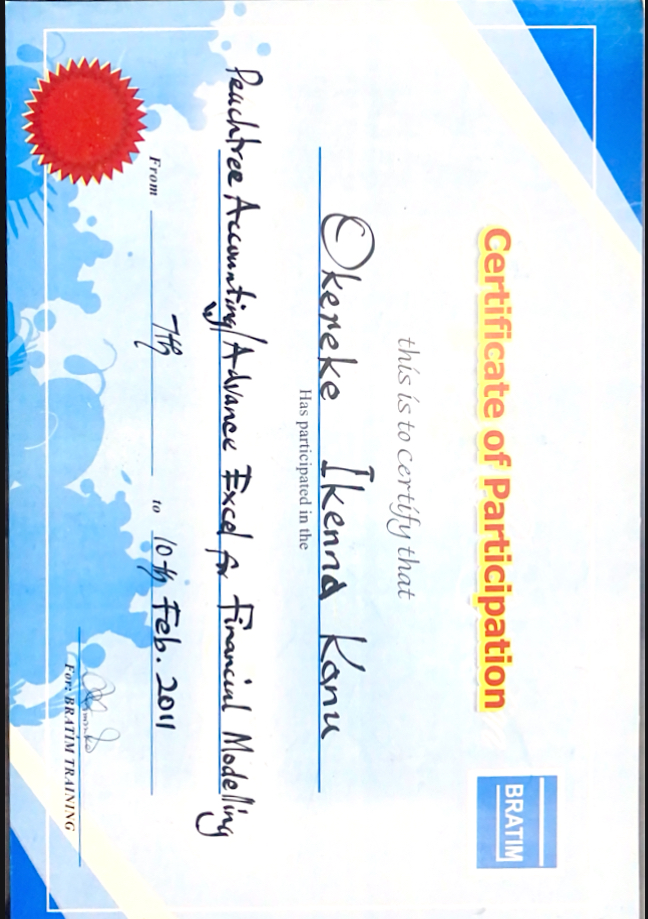 BRATIM
Certificate of Participation
this is to certify that
Okereke Ikenna Kanu
Has participated in the
Peachtree Accounting/Advance Excel for Financial Modelling
From 7th to 10th Feb. 2011
For: BRATIM TRAINING